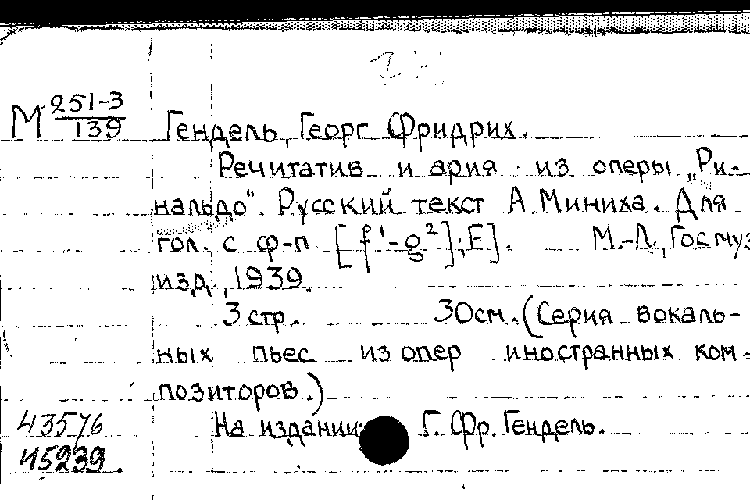 М 251-3
139
Гендель, Георг Фридрих.
Речитатив и ария из оперы „Ри-
нальдо". Русский текст А. Миниха. Для
гол. с ф-п [f¹-g²]; E]. М.-Л., Госмуз
изд., 1939.
3 стр. 30см. (Серия вокаль-
ных пьес из опер иностранных ком-
позиторов.)
43576 На издании: Г. Фр. Гендель.
45239.